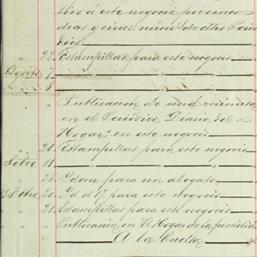 á este negocio por cinco
dias y cinco núms de otro Perió
dico
22 Estampillas para este negocio
Agosto 7
" 8
Publicacion de una minuta
en el Periódico Diario del
Hogar en este negocio
21 Estampillas para este negocio
24 Idem para un abogado
20 Id id para este negocio
21 Estampillas para este negocio
Publicacion en El Hogar de la familia
A la Vuelta